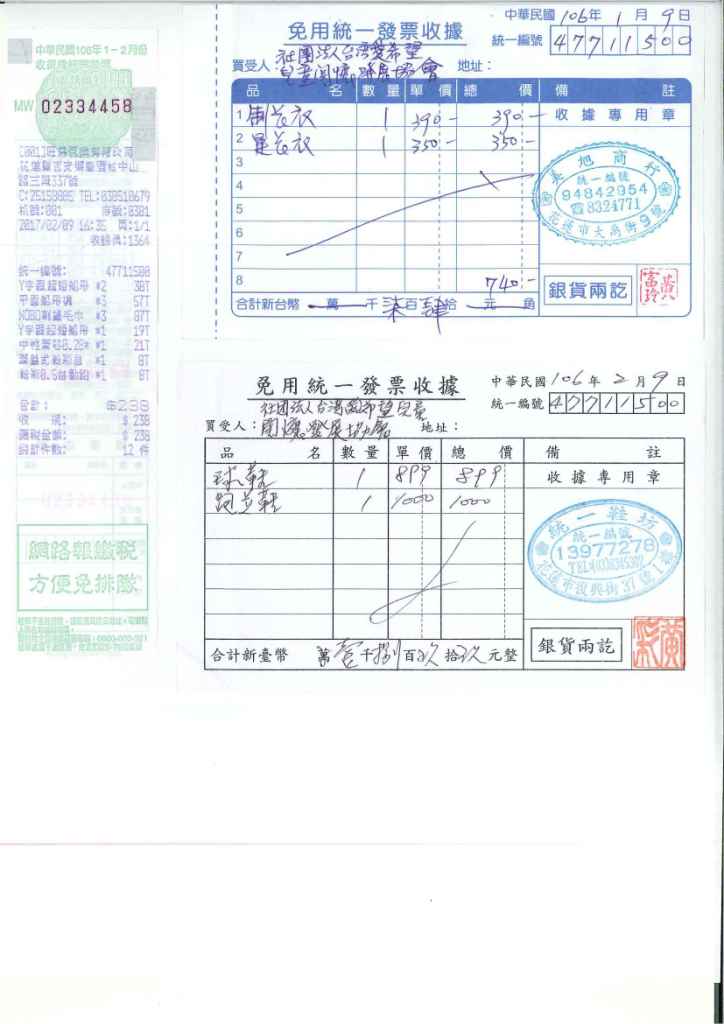 中華民國106年1-2月份
收銀機統一發票
MW 02334458
路三段337號
C:25159805 TEL:038510679
機號:001 序號:0381
2017/02/09 16:35 頁:1/1
收銀員:1364
統一編號: 47711500
Y字圓超短船用 *2 38T
*3 57T
*3 87T
Y字圓超短船用 *1 19T
*1 21T
*1 8T
*1 8T
合計: $238
收 現: $ 238
應稅金額: $ 238
銷售件數: 12 件
網路報繳稅
方便免排隊
中華民國106年1月9日
免用統一發票收據
統一編號 47711500
買受人: 社團法人台灣愛希望
兒童關懷發展協會 地址:
品名 數量 單價 總價 備註
1 制衣 1 390- 390- 收據專用章
2 1 350- 350-
3
4
5
6
7
8 740-
合計新台幣 萬 千 柒百肆拾 元 角
美旭商行
統一編號
94842954
☎8324771
花蓮市大禹街9號
銀貨兩訖
免用統一發票收據
中華民國106年2月9日
統一編號 47711500
買受人: 社團法人台灣愛希望兒童
關懷發展協會 地址:
品名 數量 單價 總價 備註
球鞋 1 899 899 收據專用章
跑步鞋 1 1000 1000
合計新臺幣 萬壹千捌百玖拾玖元整
統一鞋坊
統一編號
13977278
花蓮市復興街37號1樓
銀貨兩訖